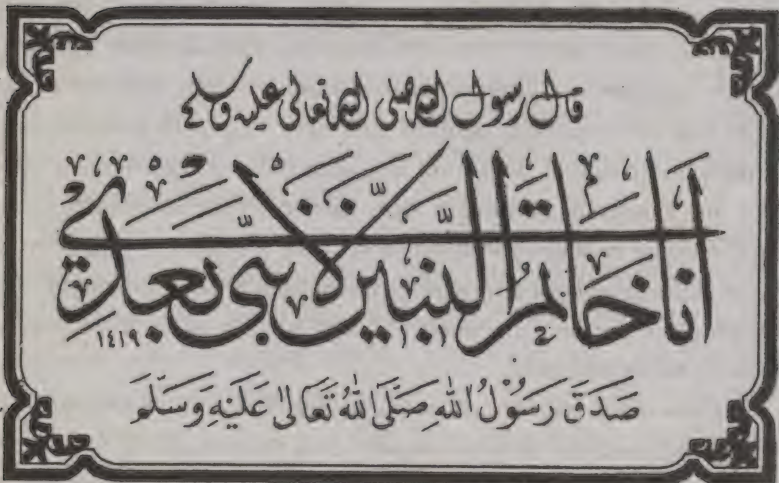 قال رسول الله صلى الله تعالى عليه وسلم
أنا خاتم النبيين لا نبي بعدي
١٤١٩
صَدَقَ رَسُوْلُ اللهِ صَلَّى اللهُ تَعَالٰى عَلَيْهِ وَسَلَّمَ